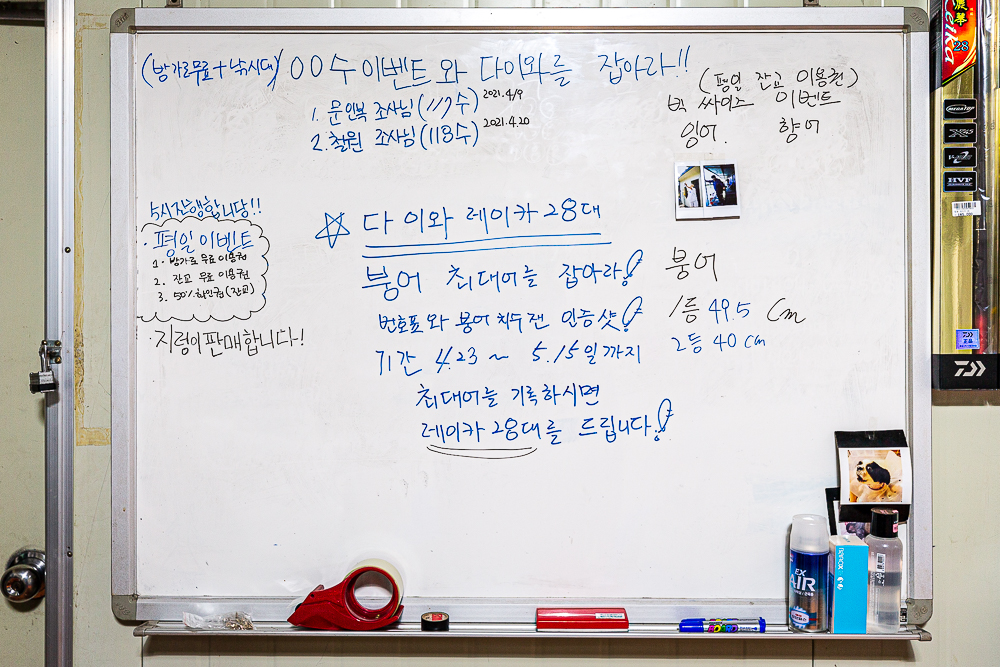 (방가로무료+낚시대) 00수 이벤트와 다이와를 잡아라!!
1. 문인복 조사님 (117수) 2021.4/9
2. 찰원 조사님 (118수) 2021.4.20
(평일 잔교 이용권)
빅 싸이즈 이벤트
잉어. 향어
낚시진행합니다!!
·평일 이벤트
1. 방가로 무료 이용권
2. 잔교 무료 이용권
3. 50% 할인권 (잔교)
·지렁이 판매합니다!
☆ 다이와 레이카 28대
붕어 최대어를 잡아라!
번호표와 붕어 치수 잰 인증샷!
기간 4.23 ~ 5.15일까지
최대어를 기록하시면
레이카 28대를 드립니다!
붕어
1등 49.5 Cm
2등 40 cm
Leika
28
X45
HVF
EX
AIR